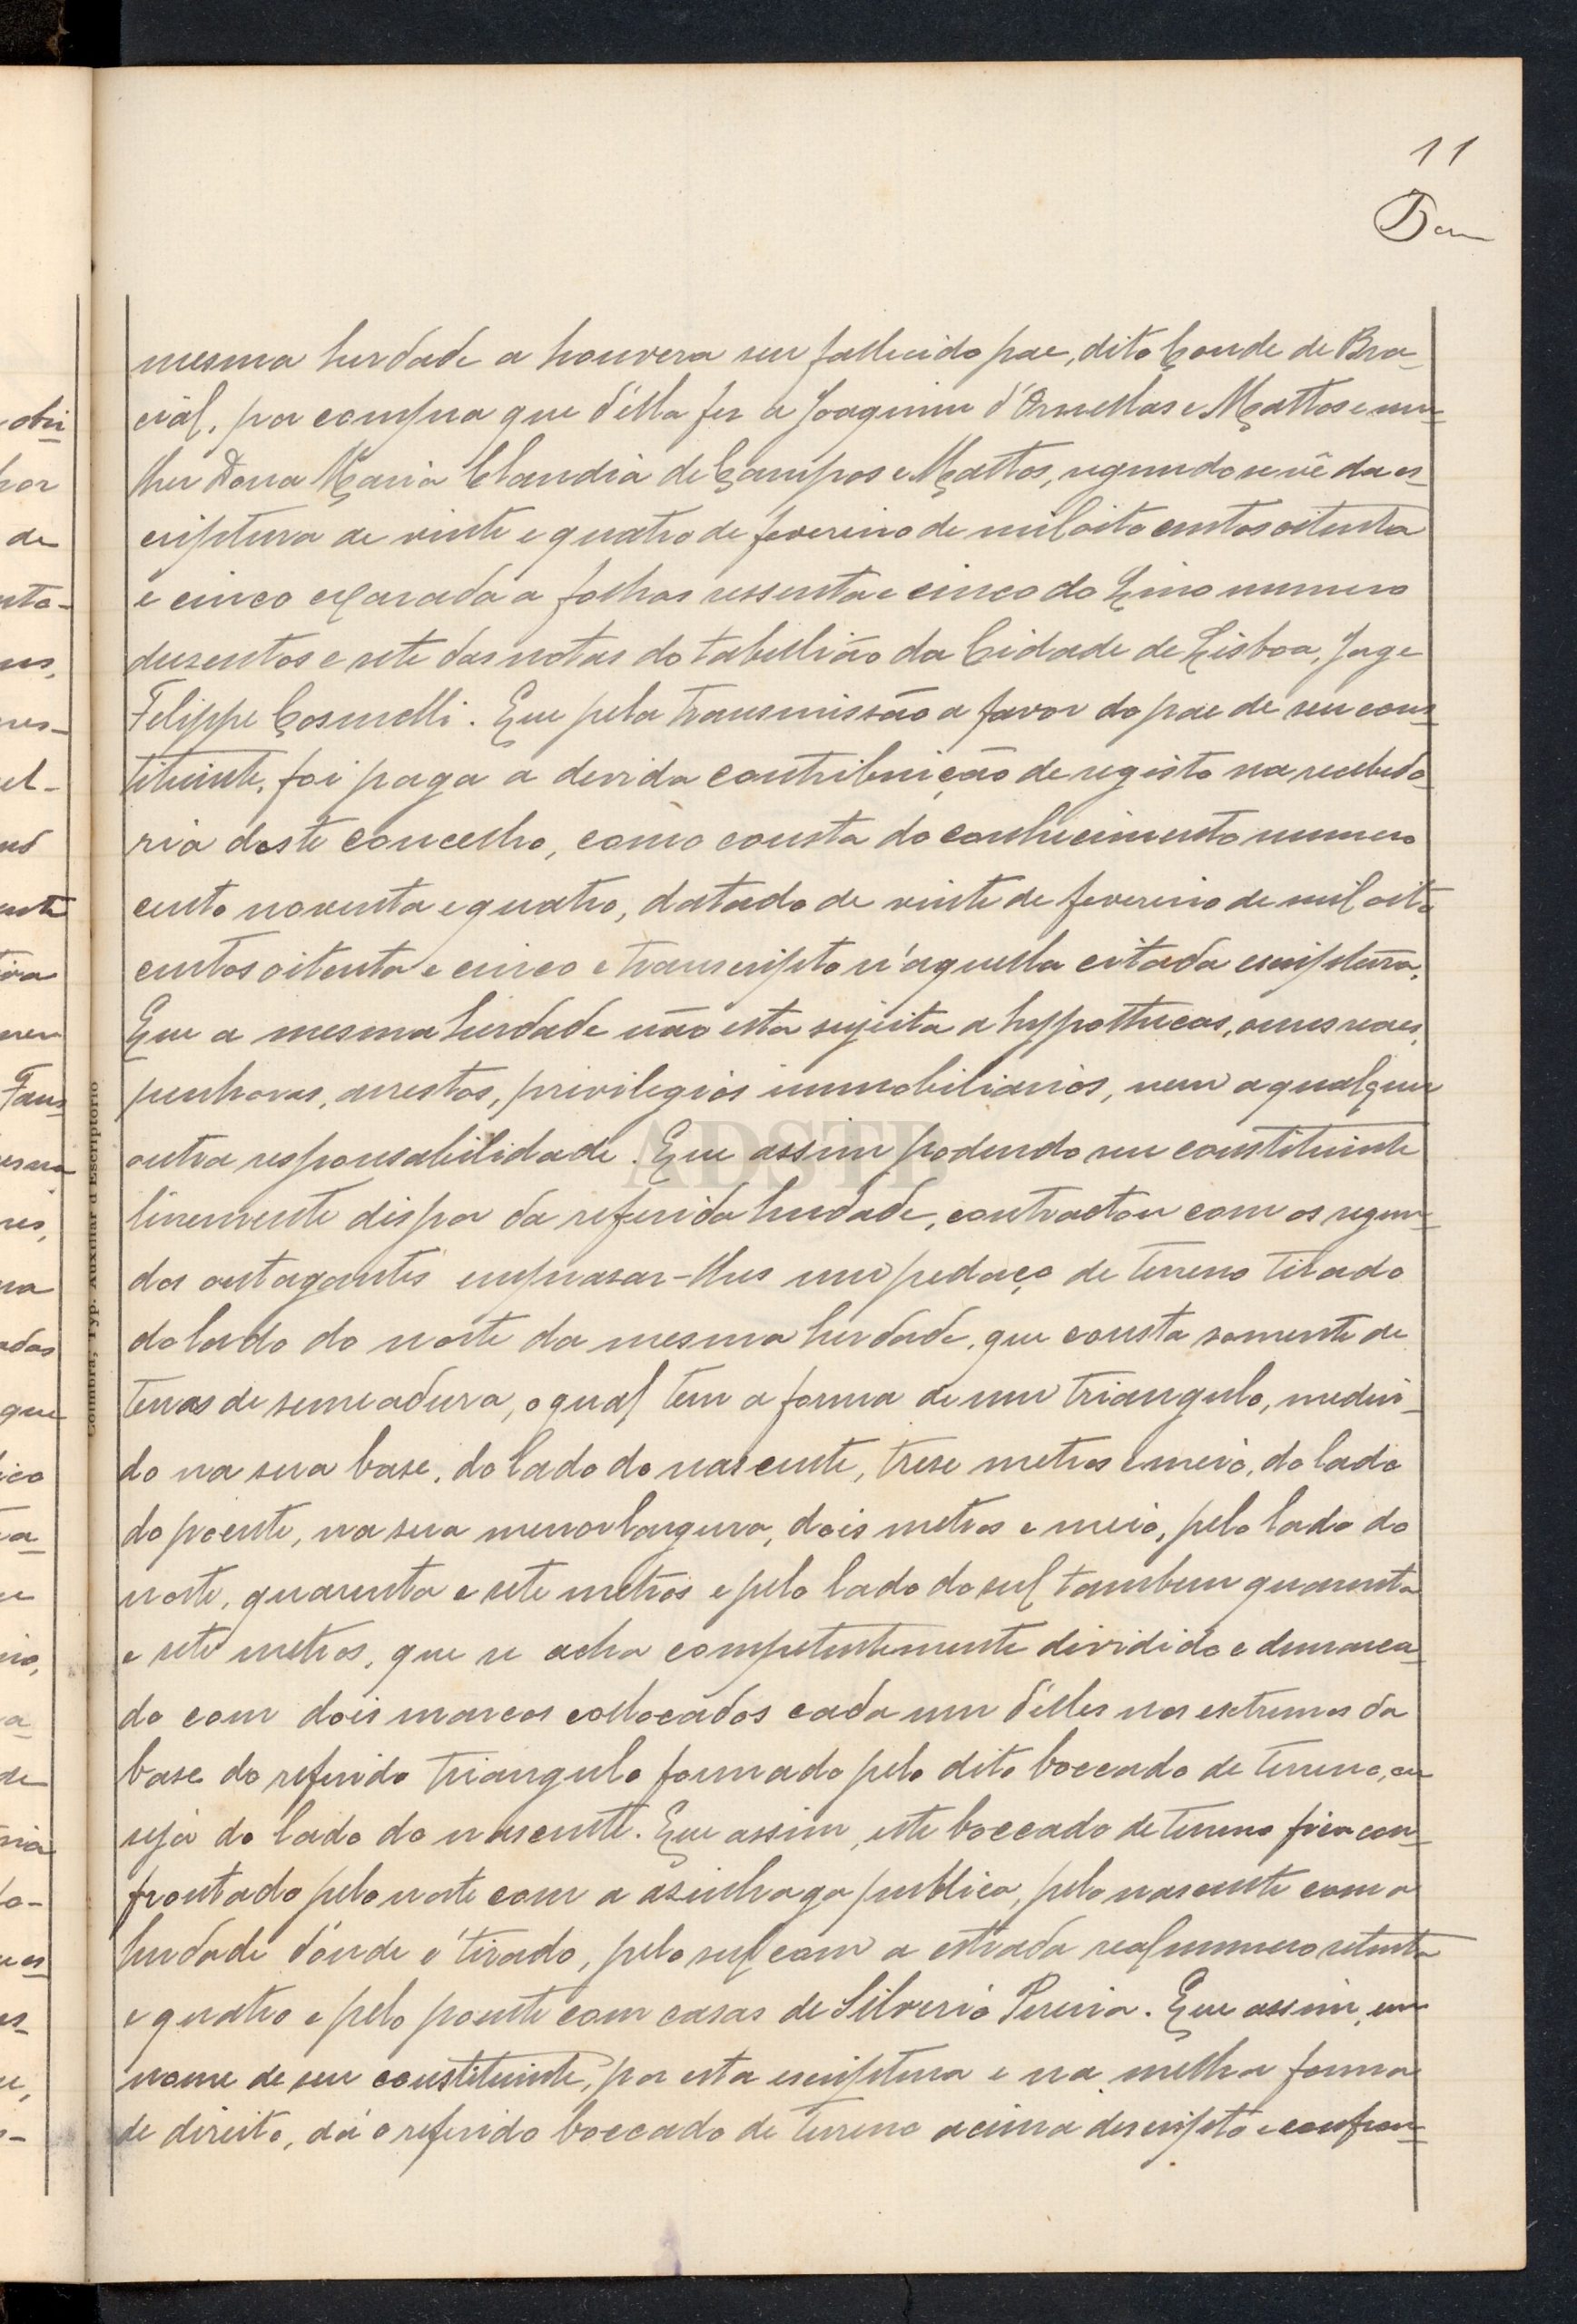 11
mesma herdade a houvera seu fallecido pae, dito Conde de Bra-
cial, por compra que d'ella fez a Joaquim d'Ornellas e Mattos e mu-
lher Dona Maria Claudia de Campos e Mattos, segundo se vê da es-
criptura de vinte e quatro de fevereiro de mil oito centos oitenta
e cinco exarada a folhas sessenta e cinco do Livro numero
duzentos e sete das notas do tabellião da Cidade de Lisboa, Jorge
Felippe Cosmelli. Que pela transmissão a favor do pae de seu cons-
tituinte, foi paga a devida contribuição de registo na recebedo-
ria deste concelho, como consta do conhecimento numero
cento noventa e quatro, datado de vinte de fevereiro de mil oito
centos oitenta e cinco e transcripto n'aquella citada escriptura.
Que a mesma herdade não esta sujeita a hypothecas, onus reaes,
penhoras, arrestos, privilegios immobiliarios, nem a qualquer
outra responsabilidade. Que assim podendo seu constituinte
livremente dispor da referida herdade, contractou com os segun-
dos outogantes emprasar-lhes um pedaço de terreno tirado
do lado do norte da mesma herdade, que consta somente de
terras de semeadura, o qual tem a forma de um triangulo, medin-
do na sua base, do lado do nascente, trese metros e meio, do lado
do poente, na sua menor largura, dois metros e meio, pelo lado do
norte, quarenta e sete metros e pelo lado do sul tambem quarenta
e sete metros, que se acha competentemente dividido e demarca-
do com dois marcos collocados cada um d'elles nos extremos da
base do referido triangulo formado pelo dito boccado de terreno, ou
seja do lado do nascente. Que assim, este boccado de terreno fica con-
frontado pelo norte com a asinhaga publica, pelo nascente com a
herdade d'onde é tirado, pelo sul com a estrada real numero setenta
e quatro e pelo poente com casas de Silverio Pereira. Que assim, em
nome de seu constituinte, por esta escriptura e na melhor forma
de direito, dá o referido boccado de terreno acima descripto e confron-
Coimbra, Typ. Auxiliar d'Escriptorio
ADSTB